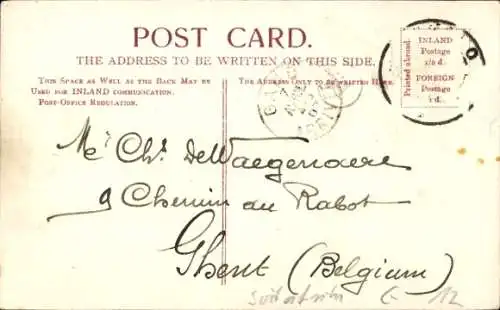 POST CARD.
THE ADDRESS TO BE WRITTEN ON THIS SIDE.
THIS SPACE AS WELL AS THE BACK MAY BE
USED FOR INLAND COMMUNICATION.
POST-OFFICE REGULATION.
THE ADDRESS ONLY TO BE WRITTEN HERE.
Printed abroad.
INLAND
Postage
½ d.
FOREIGN
Postage
1 d.
Mr Chs. DeWaegenaere
9 Chemin au Rabot
Ghent (Belgium)
12